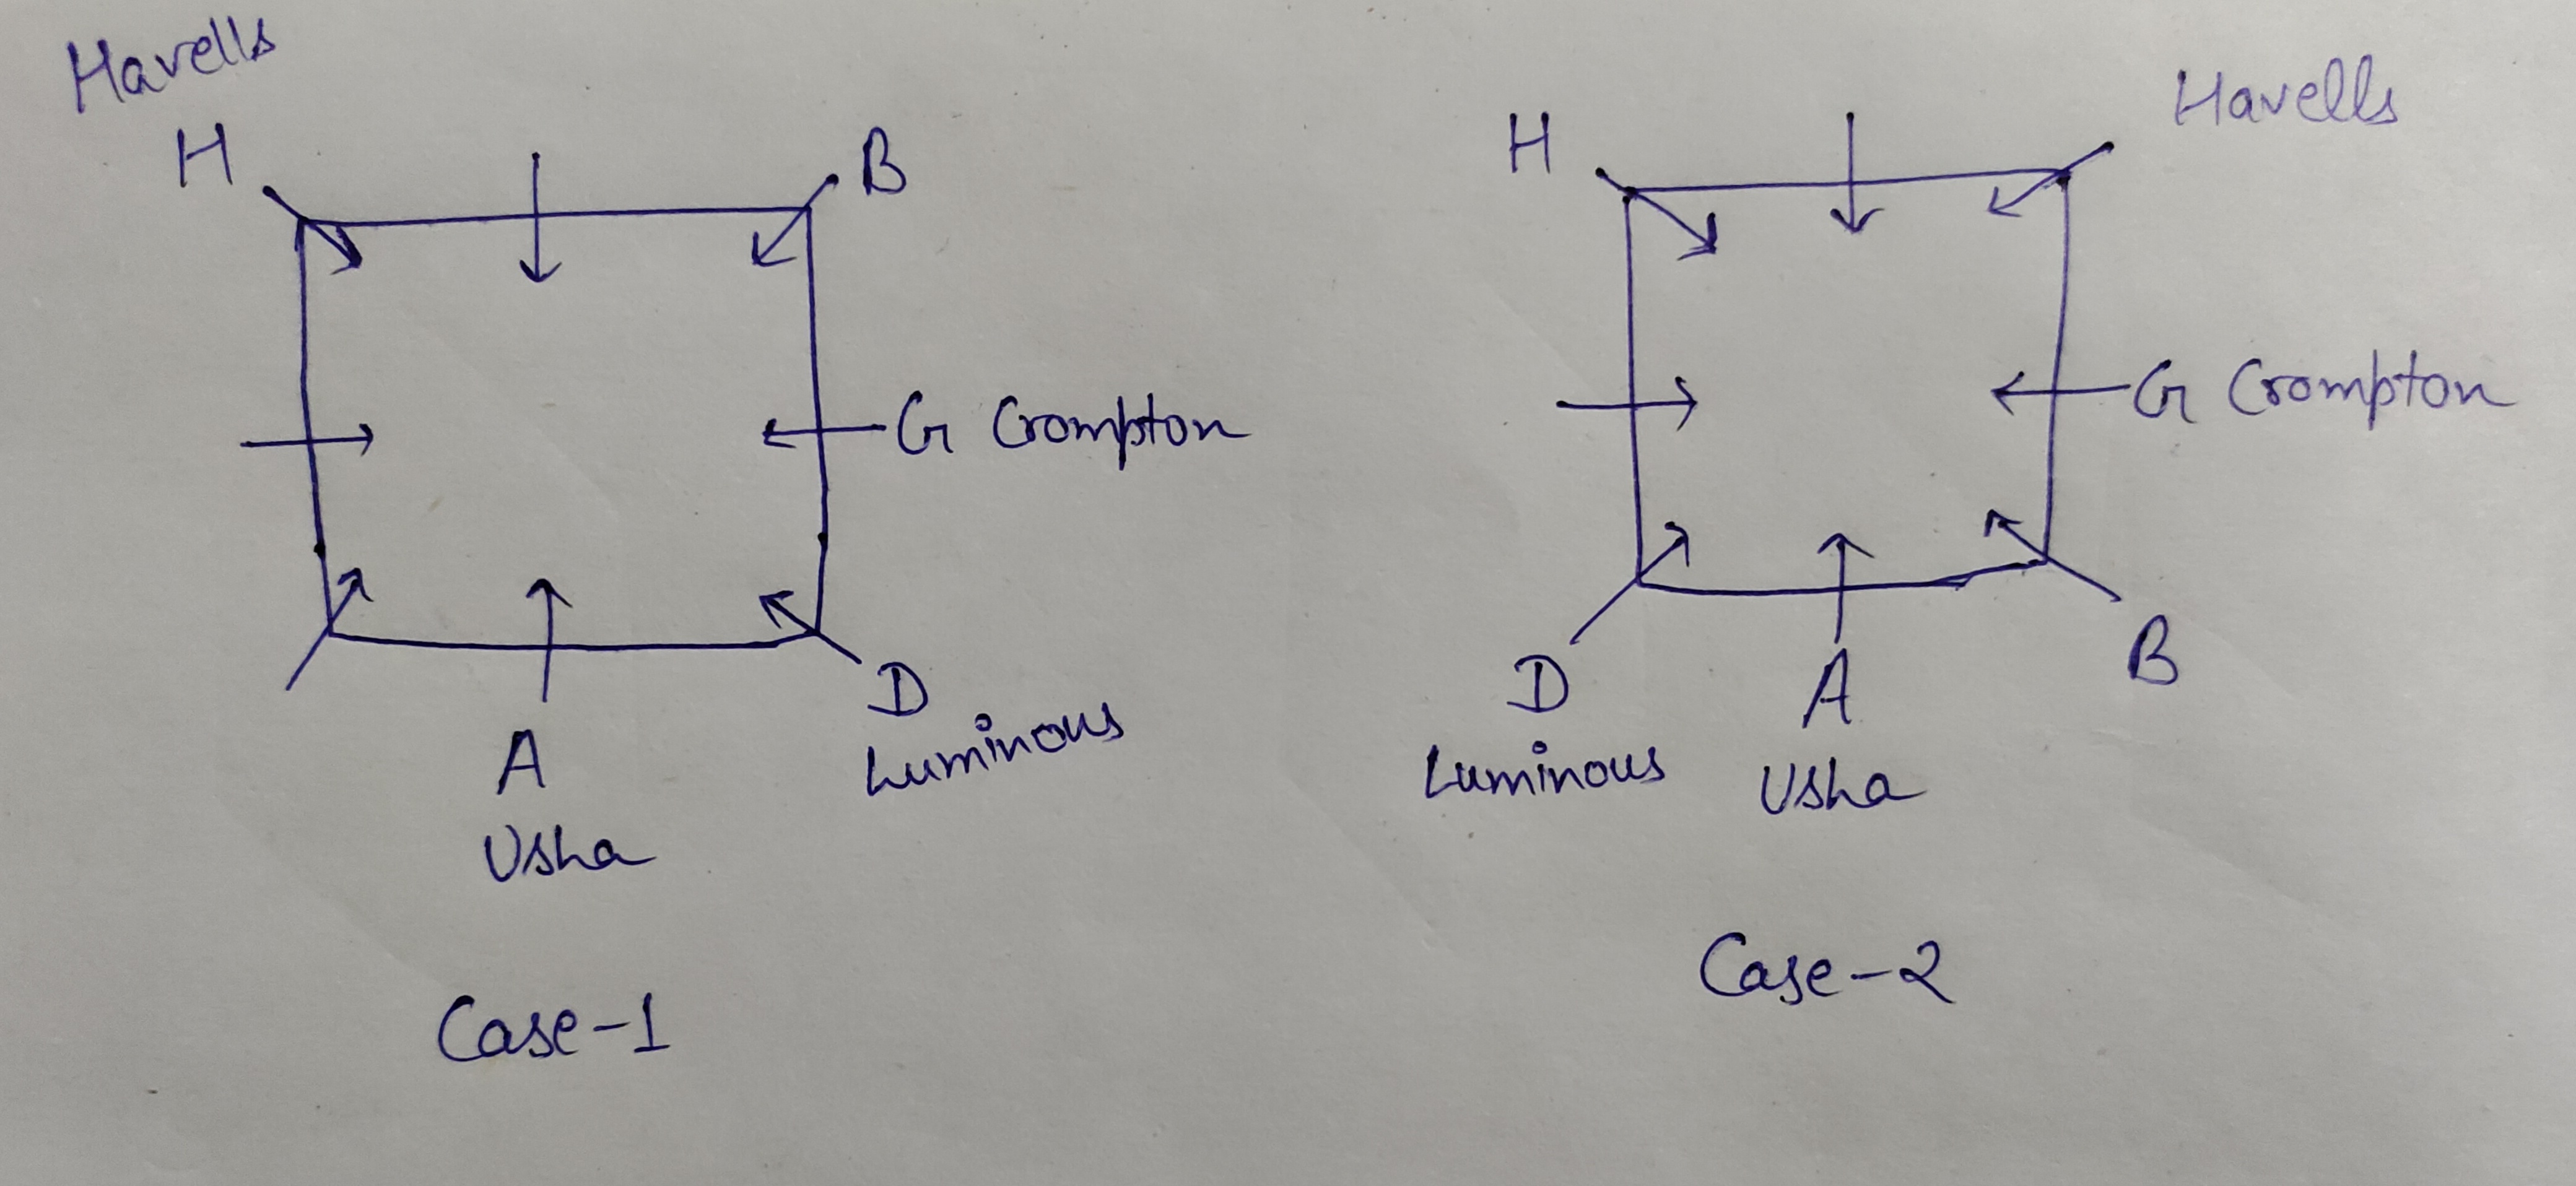 Havells
H
B
G Crompton
D
Luminous
A
Usha
Case-1
Havells
H
G Crompton
B
D
Luminous
A
Usha
Case-2